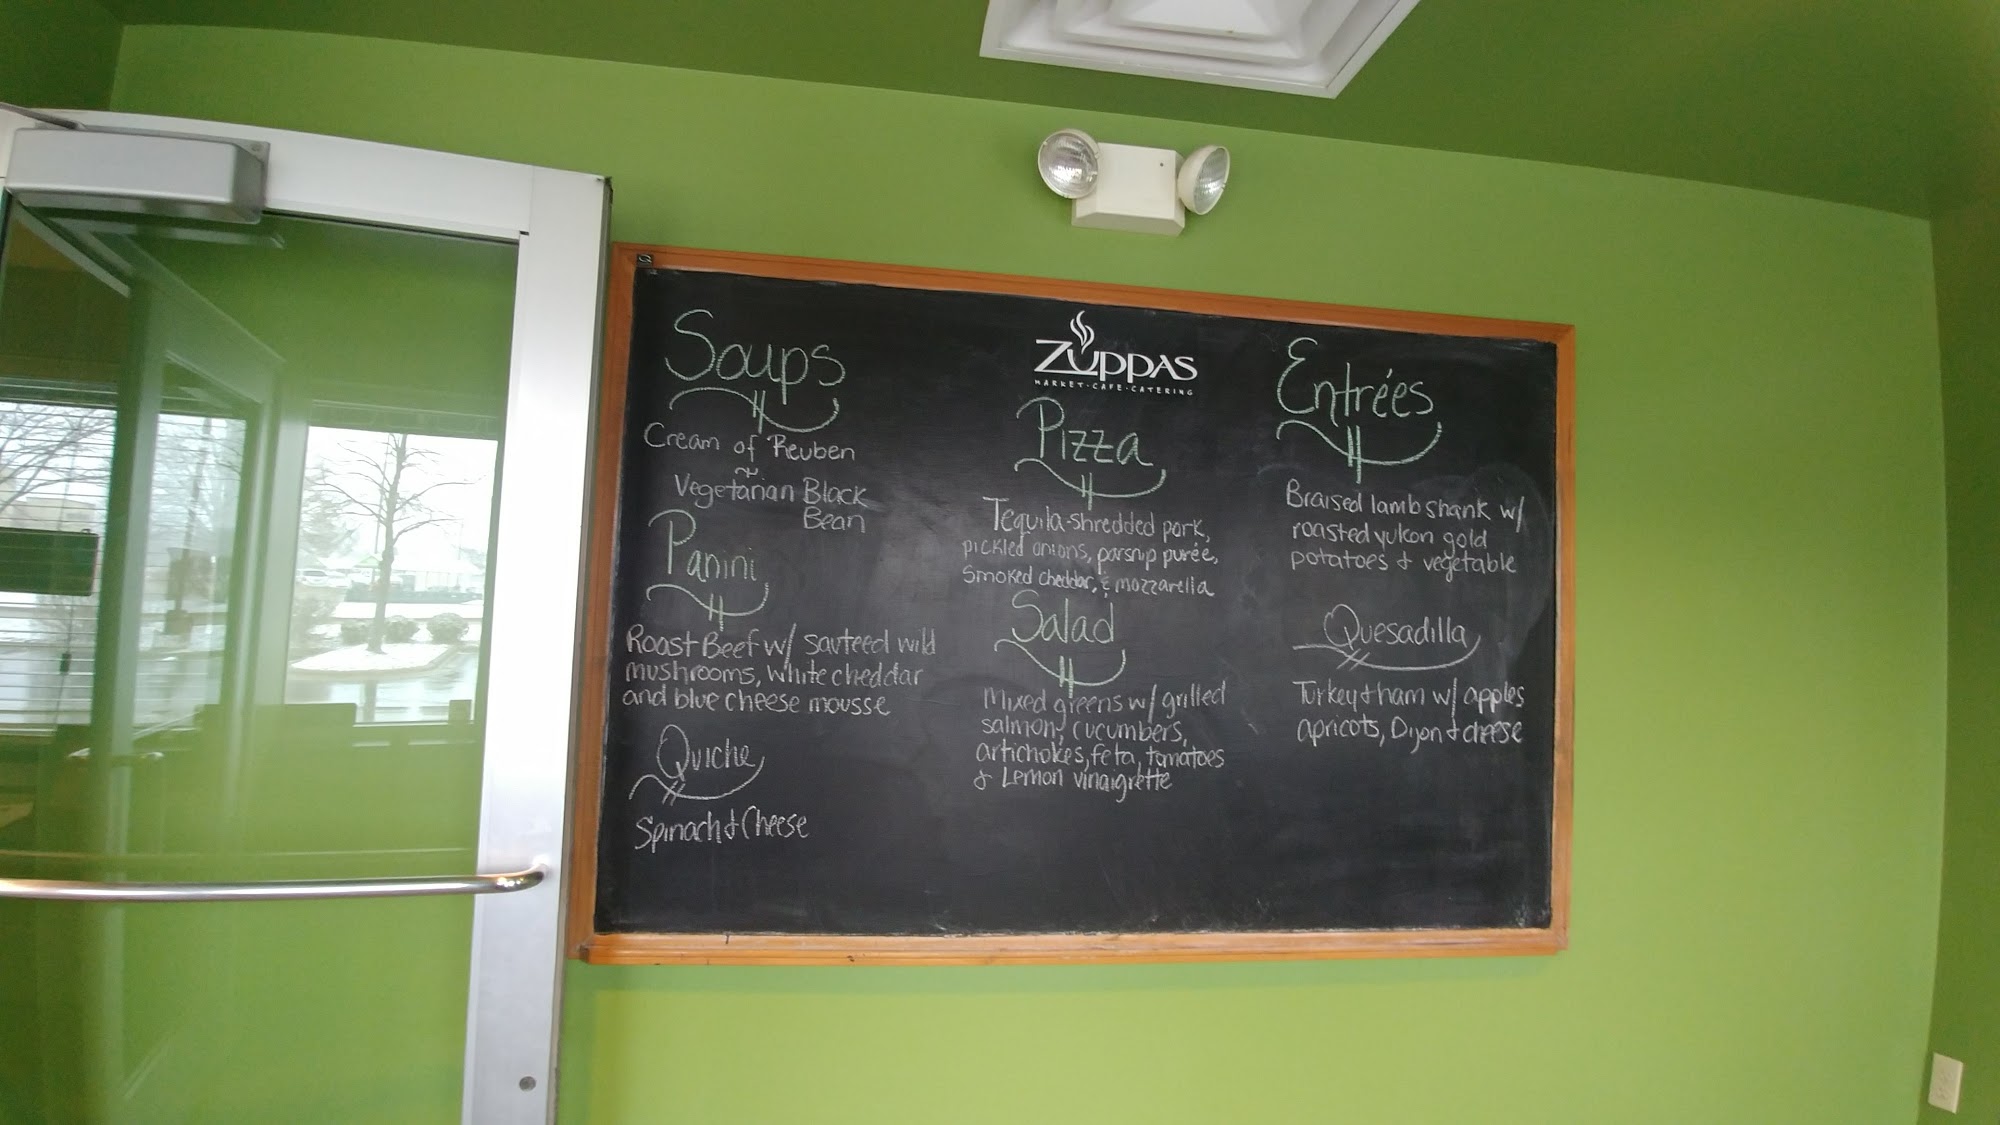 Soups
Cream of Reuben
~
Vegetarian Black
Bean
Panini
Roast Beef w/ sauteed wild
mushrooms, white cheddar
and blue cheese mousse
Quiche
Spinach & Cheese
ZUPPAS
MARKET · CAFE · CATERING
Pizza
Tequila-shredded pork,
pickled onions, parsnip purée,
smoked cheddar, & mozzarella
Salad
Mixed greens w/ grilled
salmon, cucumbers,
artichokes, feta, tomatoes
& Lemon vinaigrette
Entrées
Braised lamb shank w/
roasted yukon gold
potatoes & vegetable
Quesadilla
Turkey & ham w/ apples
apricots, Dijon & cheese